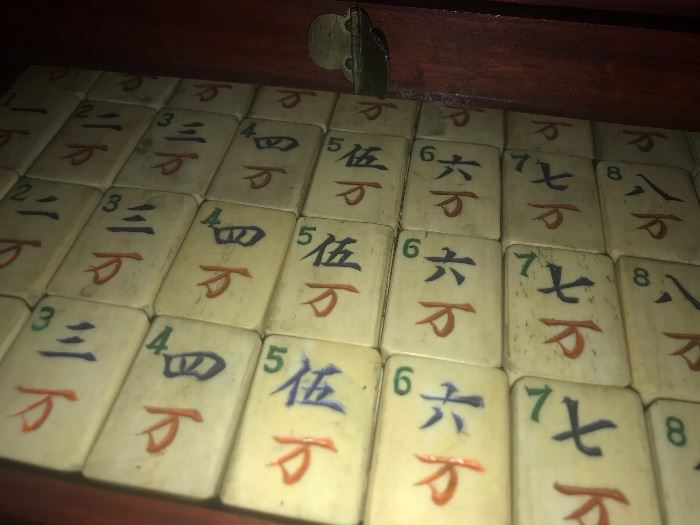 万 万 万 万 万 万 万 万
1 一 2 二 3 三 4 四 5 伍 6 六 7 七 8 八
万 万 万 万 万 万 万 万
2 二 3 三 4 四 5 伍 6 六 7 七 8 八
万 万 万 万 万 万 万
3 三 4 四 5 伍 6 六 7 七 8
万 万 万 万 万